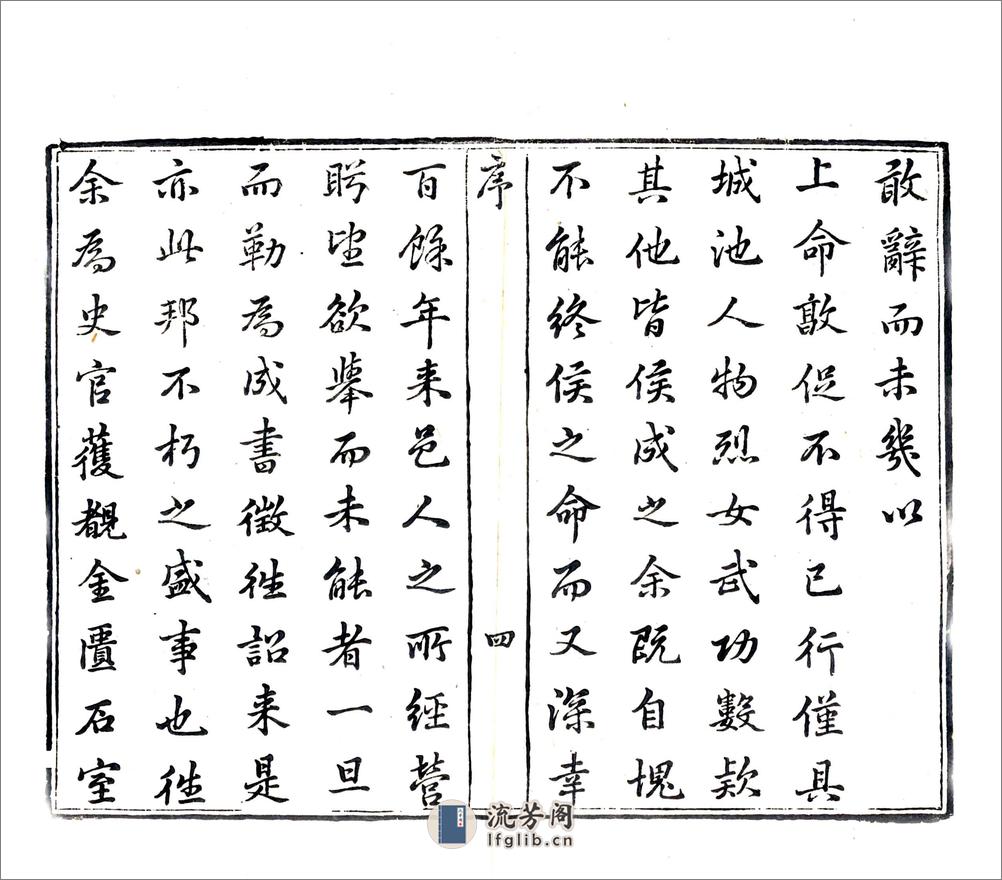 敢辭而未幾以
上命敦促不得已行僅具
城池人物烈女武功數款
其他皆侯成之余既自愧
不能終侯之命而又深幸
序
四
百餘年来邑人之所經營
盻望欲舉而未能者一旦
而勒為成書徵徃詔来是
亦此邦不朽之盛事也徃
余為史官獲覩金匱石室
流芳阁
lfglib.cn